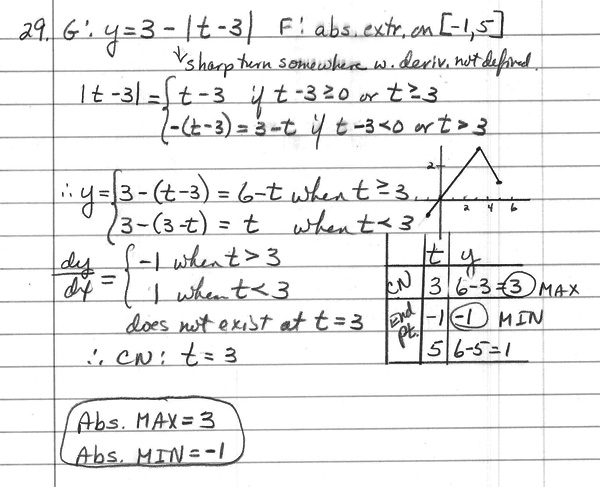 29. G: y = 3 - |t-3| F: abs. extr. on [-1,5]
↓ sharp turn somewhere w. deriv. not defined.
|t-3| = { t-3 if t-3≥0 or t≥3
-(t-3) = 3-t if t-3<0 or t>3
2
2 4 6
∴ y = { 3-(t-3) = 6-t when t≥3
3-(3-t) = t when t<3
dy/dx = { -1 when t>3
1 when t<3
does not exist at t=3
∴ CN: t=3
t y
CN 3 6-3=3 MAX
End Pt. -1 -1 MIN
5 6-5=1
Abs. MAX = 3
Abs. MIN = -1